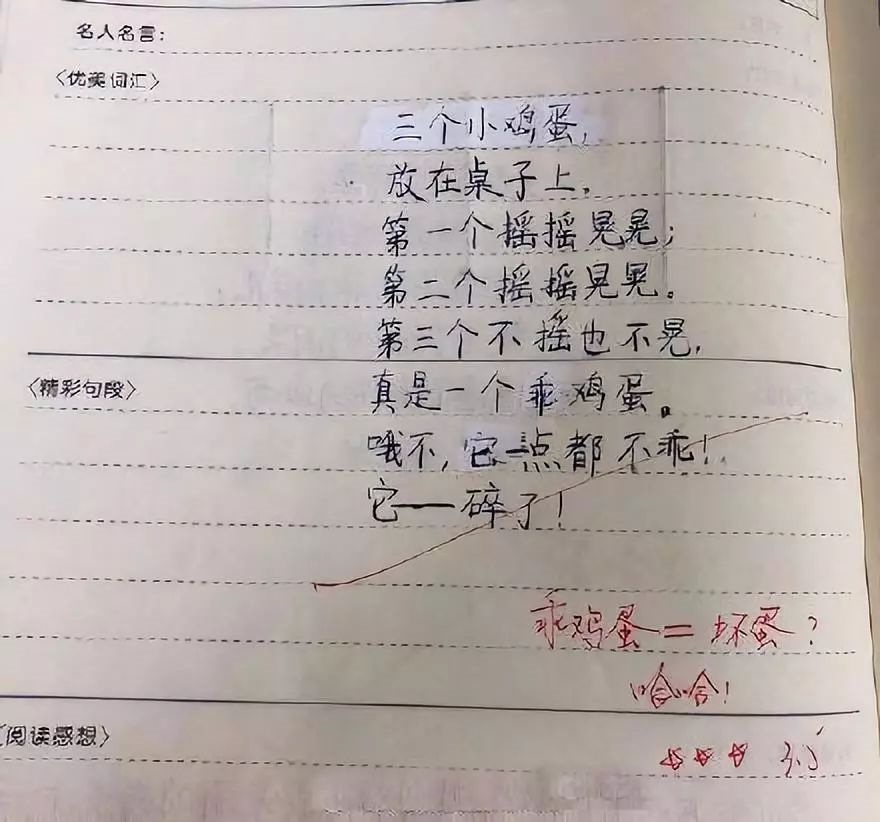 名人名言：
〈优美词汇〉
三个小鸡蛋，
放在桌子上，
第一个摇摇晃晃；
第二个摇摇晃晃。
第三个不摇也不晃，
〈精彩句段〉
真是一个乖鸡蛋。
哦不，它一点都不乖！
它——碎了！
乖鸡蛋＝坏蛋？
哈哈！
〈阅读感想〉
☆☆☆